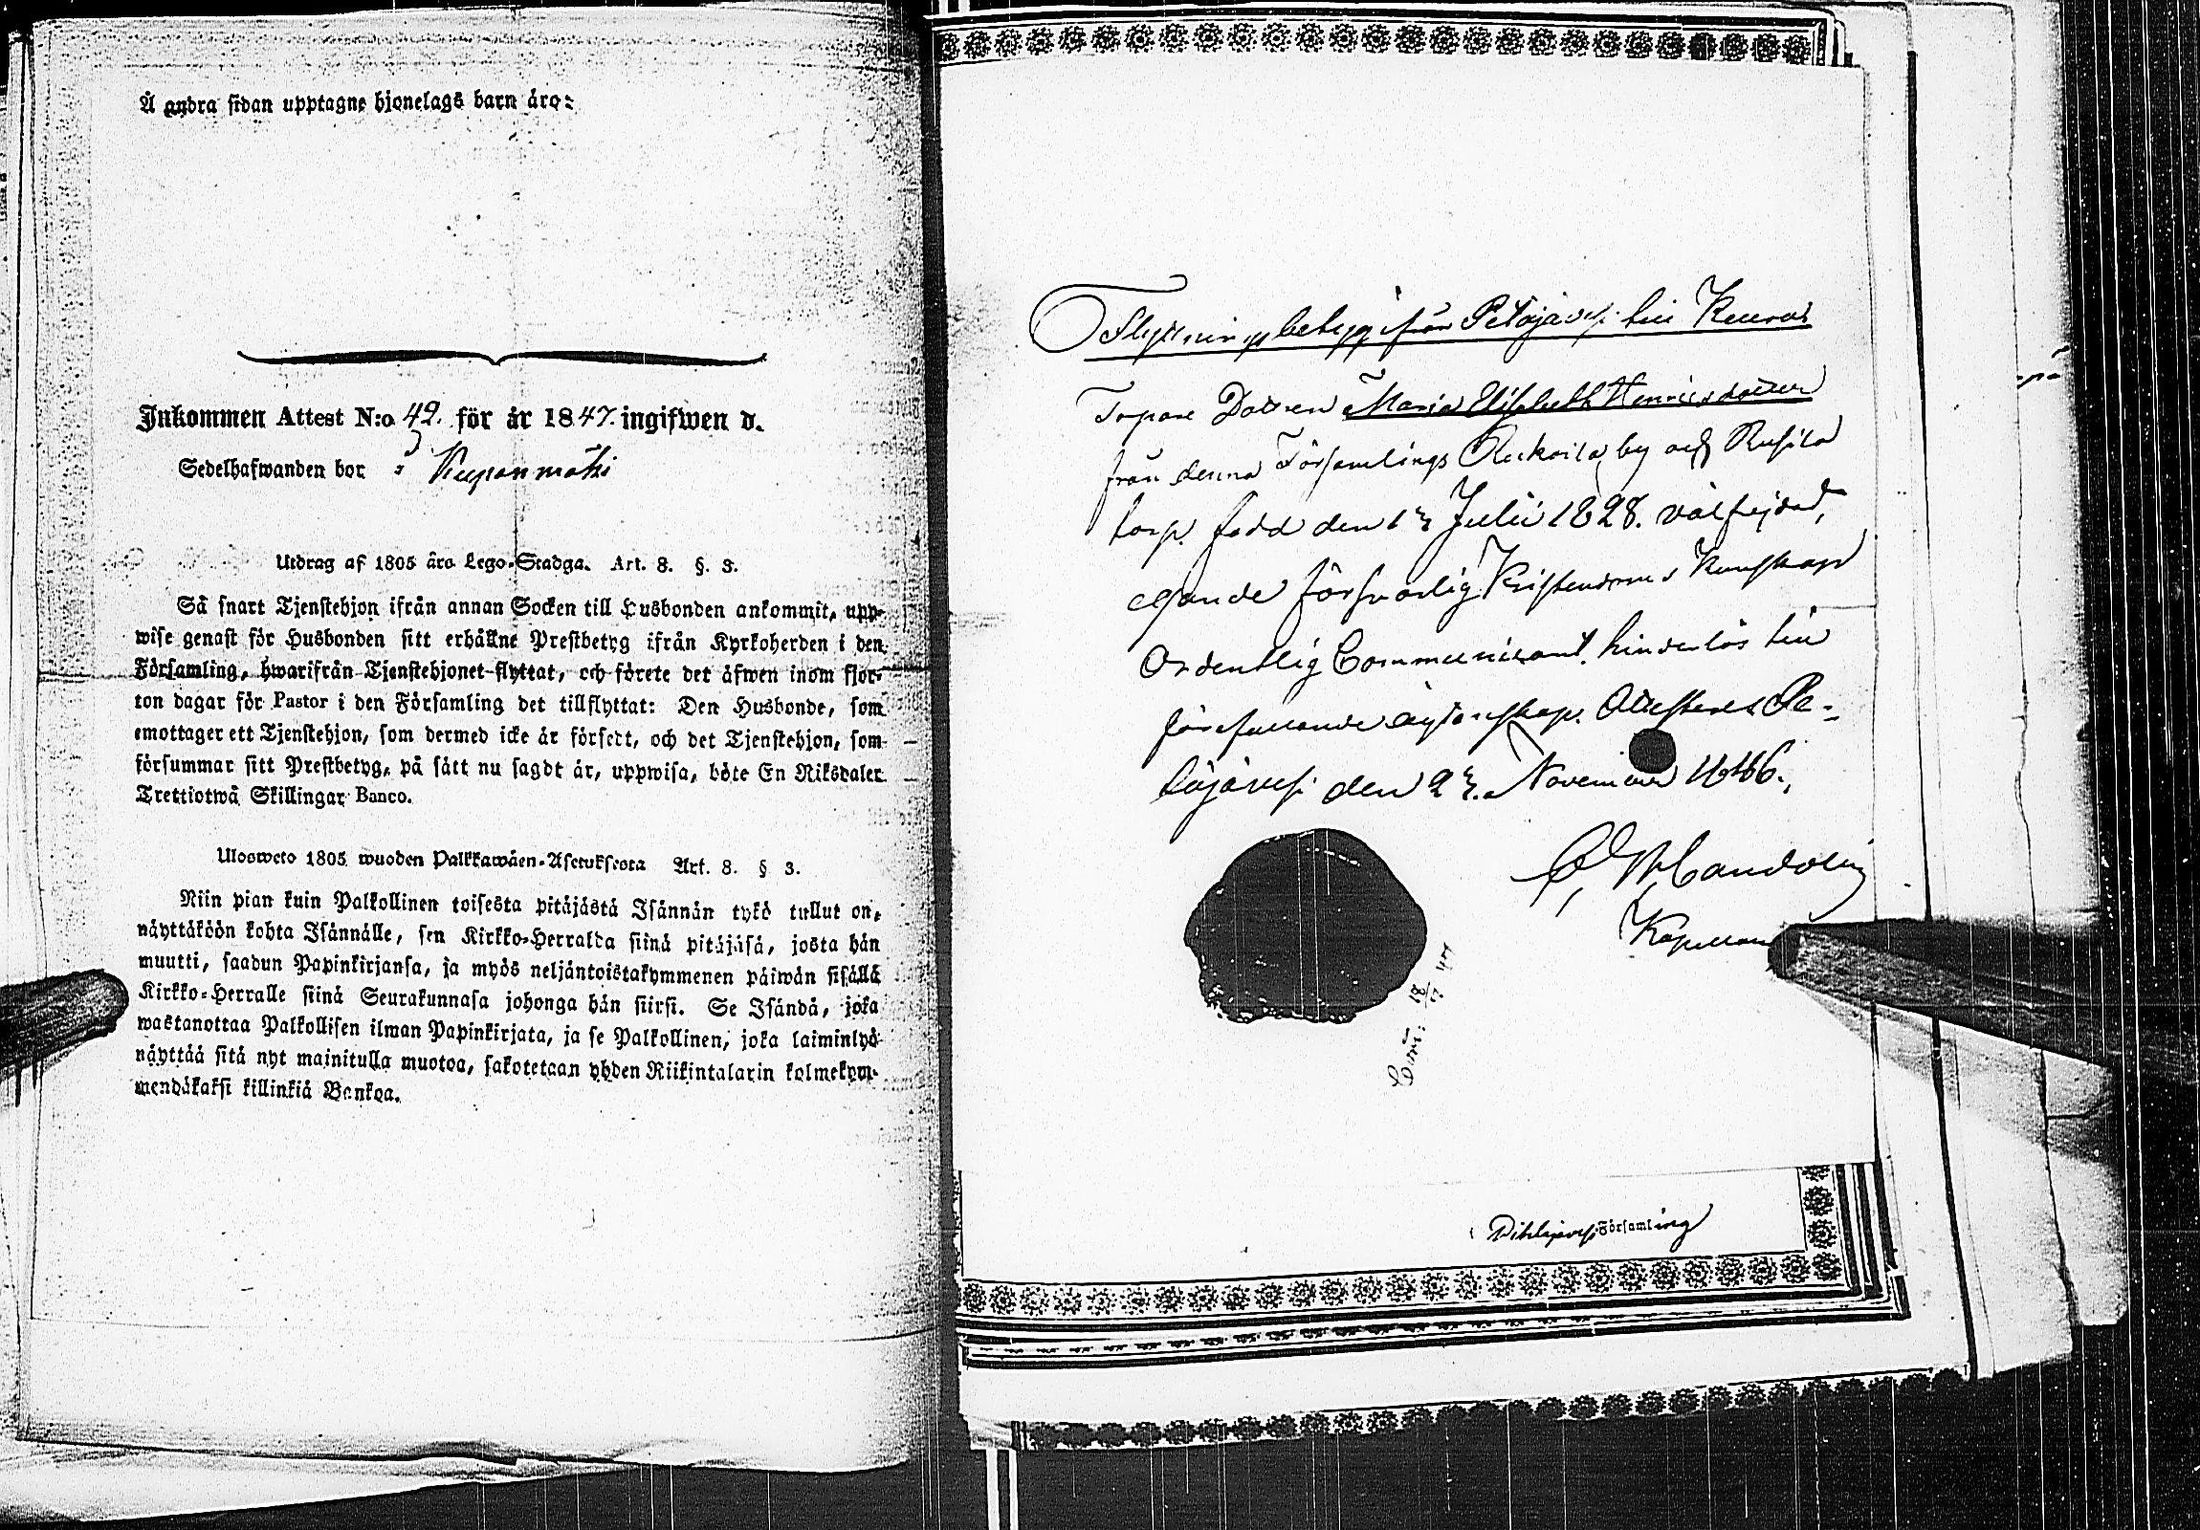 Å andra sidan upptagne hjonelags barn äro:
Inkommen Attest N:o 42. för år 1847. ingifwen d.
Sedelhafwanden bor i Kuppanmäki
Utdrag af 1805 års Lego-Stadga. Art. 8. §. 3.
Så snart Tjenstehjon ifrån annan Socken till Husbonden ankommit, upp-
wise genast för Husbonden sitt erhållne Prestbetyg ifrån Kyrkoherden i den
Församling, hwarifrån Tjenstehjonet flyttat, och förete det äfwen inom fjor-
ton dagar för Pastor i den Församling det tillflyttat: Den Husbonde, som
emottager ett Tjenstehjon, som dermed icke är försedt, och det Tjenstehjon, som
försummar sitt Prestbetyg, på sätt nu sagdt är, uppwisa, böte En Riksdaler
Trettiotwå Skillingar Banco.
Ulosweto 1805 wuoden Palkkawäen-Asetuksesta Art. 8. § 3.
Niin pian kuin Palkollinen toisesta pitäjästä Isännän tykö tullut on,
näyttäköön kohta Isännälle, sen Kirkko-Herralda siinä pitäjäsä, josta hän
muutti, saadun Papinkirjansa, ja myös neljäntoistakymmenen päiwän sisällä
Kirkko-Herralle siinä Seurakunnasa johonga hän siirsi. Se Isändä, joka
wastanottaa Palkollisen ilman Papinkirjata, ja se Palkollinen, joka laiminlyö
näyttää sitä nyt mainitulla muotoa, sakotetaan yhden Riikintalarin kolmekym-
mendäkaksi killinkiä Bankoa.
Flyttningsbetyg ifrån Petäjävesi till Keuru
Torpare Dottren Maria Elisabeth Henricsdotter
från denna Församlings by och
torp. född den 1 Julii 1828. välfrejdad,
egande försvarlig Kristendoms Kunskap
Ordentlig Communicant, hinderlös till
förefallande ägtenskap. Attesteras Pe-
täjävesi den 23. November 1846.
Candolin
Kapellan
18/7 47
Pihlajavesi Församling